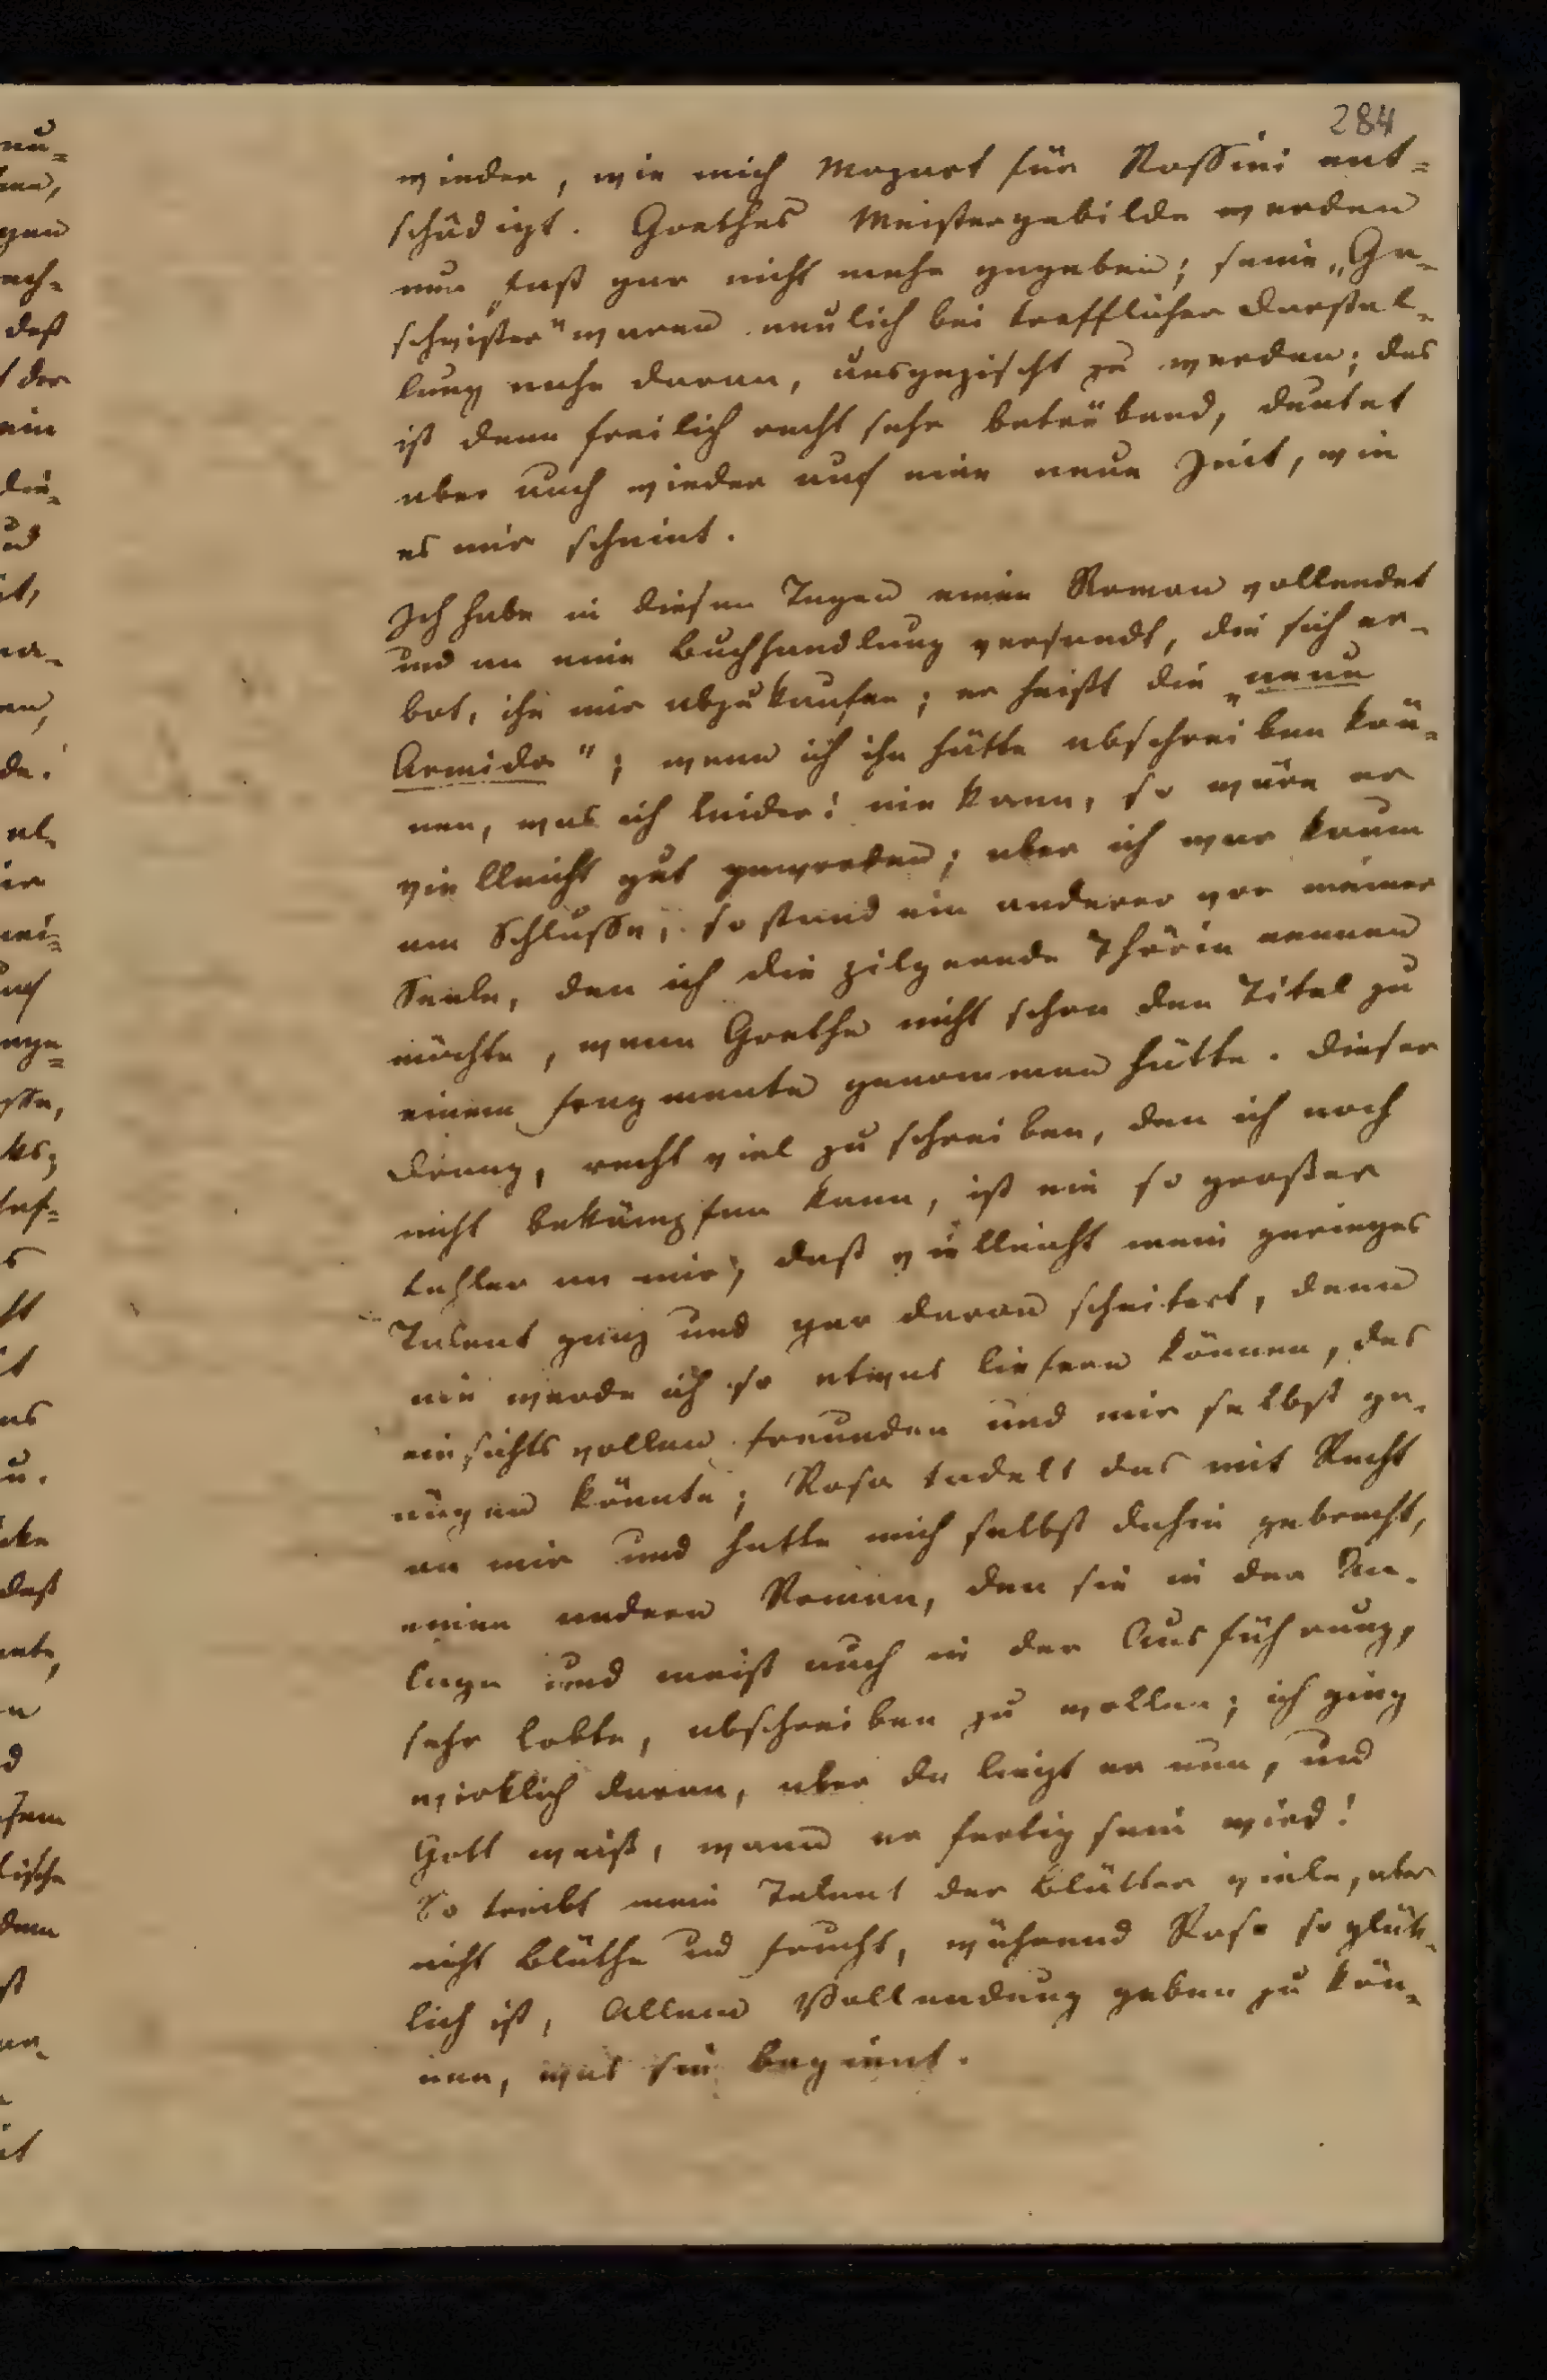 284
wieder, wie mich Mozart für Rossini ent=
schädigt. Goethes Meistergebilde werden
nun fast gar nicht mehr gegeben; seine „Ge-
schwister" waren neulich bei trefflicher Darstel-
lung nahe daran, ausgezischt zu werden; das
ist denn freilich recht sehr betrübend, deutet
aber auch wieder auf eine neue Zeit, wie
es mir scheint.
Ich habe in diesen Tagen einen Roman vollendet
und an eine Buchhandlung versandt, die sich er-
bot, ihn mir abzukaufen; er heißt die „neue
Armida"; wenn ich ihn hätte abschreiben kön-
nen, was ich leider! nie kann, so wäre er
vielleicht gut geworden; aber ich war kaum
am Schlusse, so stand ein anderer vor meiner
Seele, den ich die pilgernde Thörin nennen
möchte, wenn Goethe nicht schon den Titel zu
einem Fragmente genommen hätte. Dieser
Drang, recht viel zu schreiben, den ich noch
nicht bekämpfen kann, ist ein so großer
Fehler an mir, daß vielleicht mein geringes
Talent ganz und gar daran scheitert, denn
nie werde ich so etwas liefern können, das
einsichtsvollen Freunden und mir selbst ge-
nügen könnte; Rosa tadelt das mit Recht
an mir und hatte mich selbst dahin gebracht,
einen andern Roman, den sie in der An-
lage und meist auch in der Ausführung,
sehr lobte, abschreiben zu wollen; ich ging
wirklich daran, aber da liegt er nun, und
Gott weiß, wann er fertig sein wird!
So treibt mein Talent der Blätter viele, aber
nicht Blüthe und Frucht, während Rosa so glük-
lich ist, Allem Vollendung geben zu kön-
nen, was sie beginnt.
nu=
daß
der
ein
und
auf
daß
dem